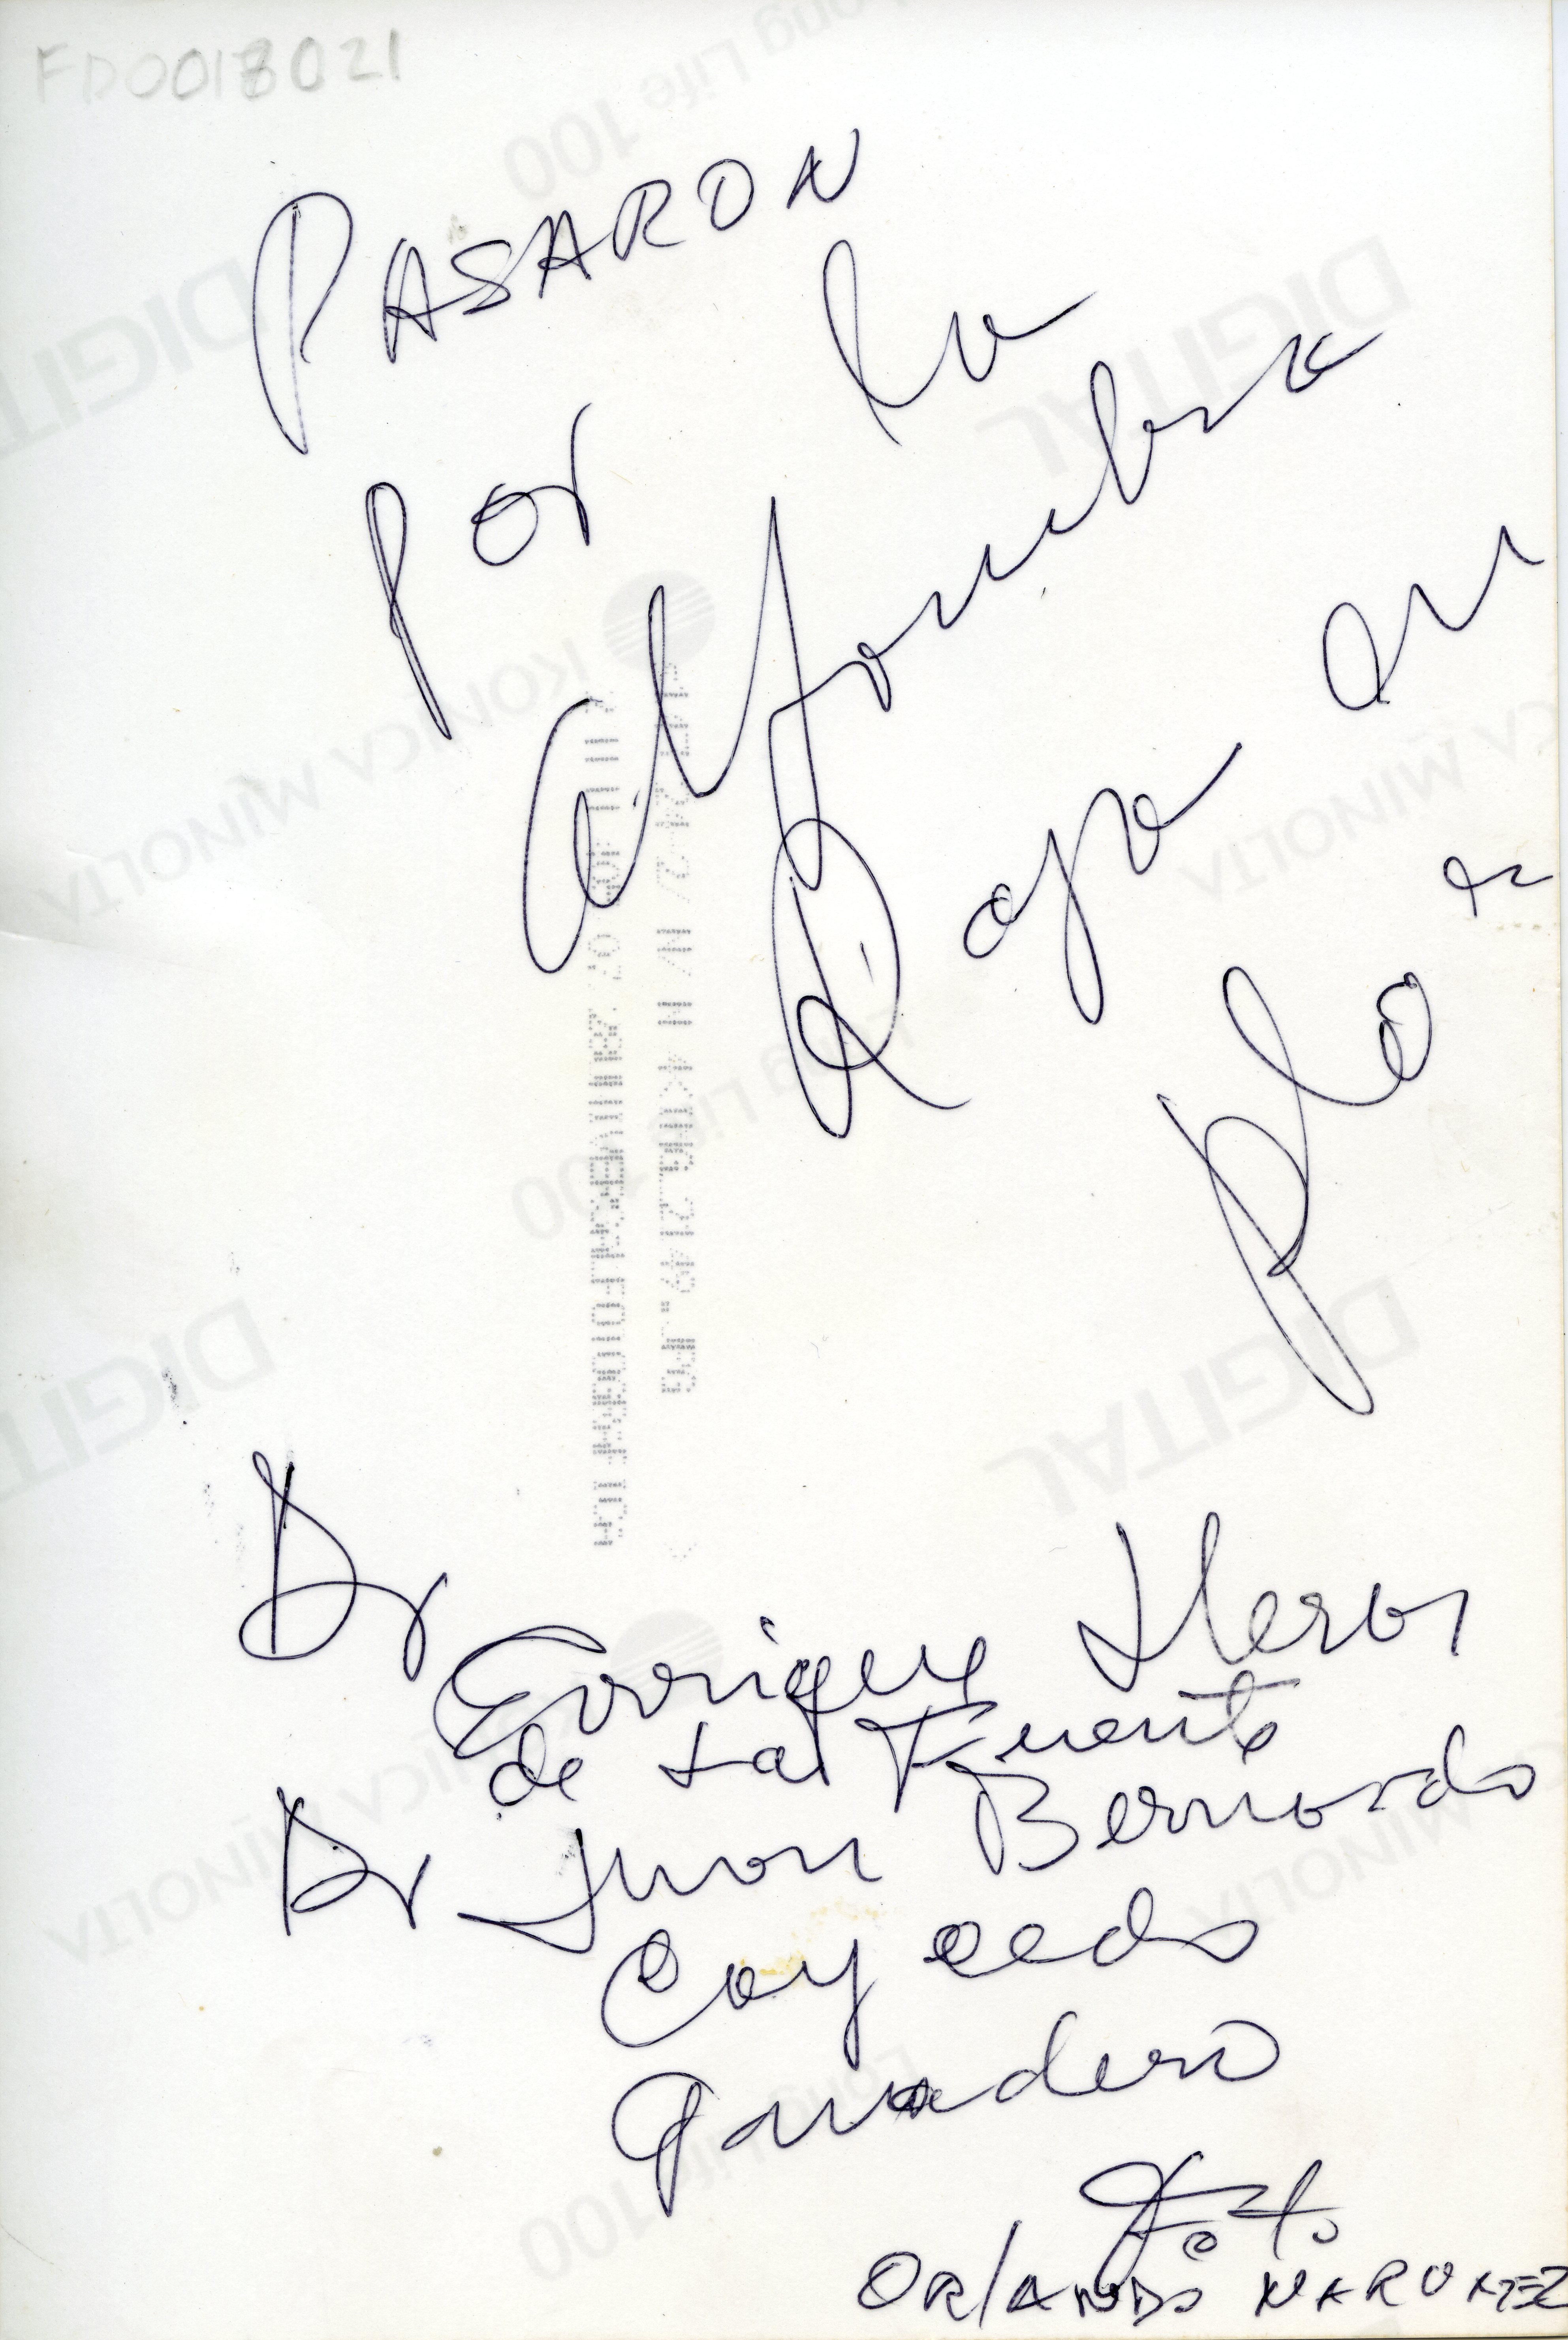 FD0018021
PASARON
por la
alfombra
Roja en
Dr
Enrique Heros
de La Fuente
Dr Juan Bernardo
Caycedo
Ganadero
Foto
ORlANDO
DIGITAL
KONICA MINOLTA
Long Life 100